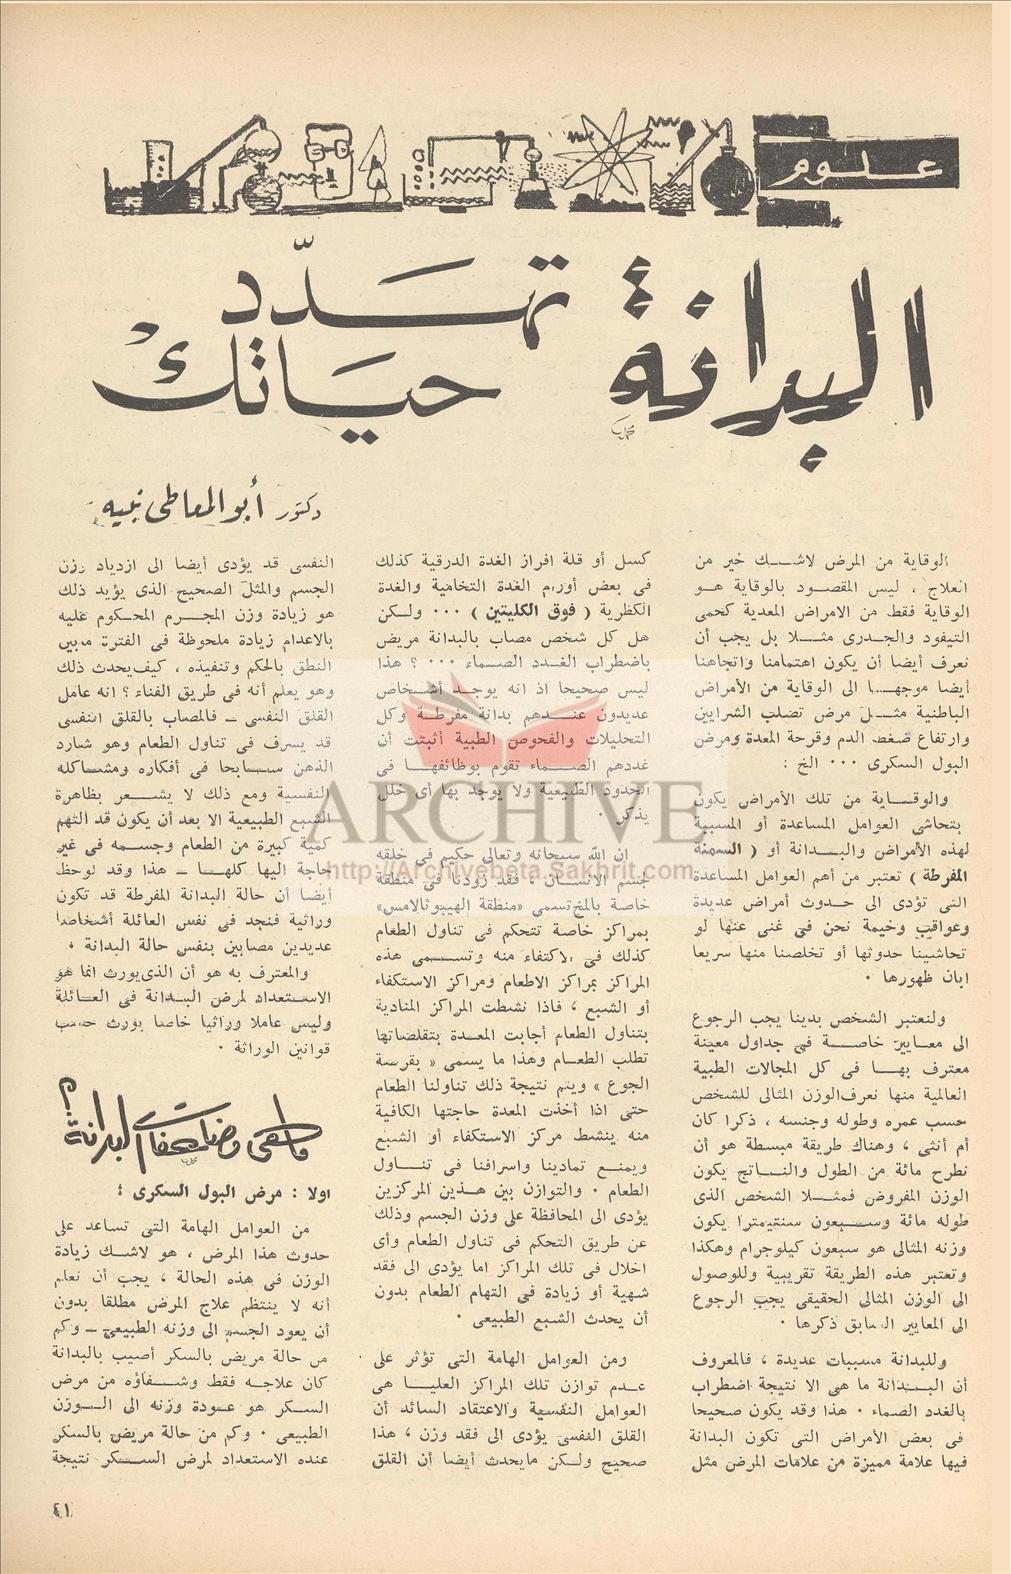 علوم
البدانة تهدّد
حياتك
دكتور أبو المعاطى نبيه
الوقاية من المرض لاشك خير من
العلاج ، ليس المقصود بالوقاية هو
الوقاية فقط من الامراض المعدية كحمى
التيفود والجدرى مثلا بل يجب أن
نعرف أيضا أن يكون اهتمامنا واتجاهنا
أيضا موجها الى الوقاية من الأمراض
الباطنية مثل مرض تصلب الشرايين
وارتفاع ضغط الدم وقرحة المعدة ومرض
البول السكرى ٠٠٠ الخ :
والوقاية من تلك الأمراض يكون
بتحاشى العوامل المساعدة أو المسببة
لهذه الأمراض والبدانة أو ( السمنة
المفرطة ) تعتبر من أهم العوامل المساعدة
التى تؤدى الى حدوث أمراض عديدة
وعواقب وخيمة نحن فى غنى عنها لو
تحاشينا حدوثها أو تخلصنا منها سريعا
ابان ظهورها ٠
ولنعتبر الشخص بدينا يجب الرجوع
الى معايير خاصة فى جداول معينة
معترف بها فى كل المجالات الطبية
العالمية منها نعرف الوزن المثالى للشخص
حسب عمره وطوله وجنسه ، ذكرا كان
أم أنثى ، وهناك طريقة مبسطة هو أن
نطرح مائة من الطول والناتج يكون
الوزن المفروض فمثلا الشخص الذى
طوله مائة وسبعون سنتيمترا يكون
وزنه المثالى هو سبعون كيلوجرام وهكذا
وتعتبر هذه الطريقة تقريبية وللوصول
الى الوزن المثالى الحقيقى يجب الرجوع
الى المعايير السابق ذكرها ٠
وللبدانة مسببات عديدة ، فالمعروف
أن البدانة ما هى الا نتيجة اضطراب
بالغدد الصماء ٠ هذا وقد يكون صحيحا
فى بعض الأمراض التى تكون البدانة
فيها علامة مميزة من علامات المرض مثل
كسل أو قلة افراز الغدة الدرقية كذلك
فى بعض أورام الغدة النخامية والغدة
الكظرية ( فوق الكليتين ) ٠٠٠ ولكن
هل كل شخص مصاب بالبدانة مريض
باضطراب الغدد الصماء ٠٠٠ ؟ هذا
ليس صحيحا اذ انه يوجد أشخاص
عديدون عندهم بدانة مفرطة وكل
التحليلات والفحوص الطبية أثبتت أن
غددهم الصماء تقوم بوظائفها فى
الحدود الطبيعية ولا يوجد بها أى خلل
يذكر ٠
ان الله سبحانه وتعالى حكيم فى خلقه
لجسم الانسان ، فقد زودنا فى منطقة
خاصة بالمخ تسمى «منطقة الهيبوثالامس»
بمراكز خاصة تتحكم فى تناول الطعام
كذلك فى الاكتفاء منه وتسمى هذه
المراكز بمراكز الاطعام ومراكز الاستكفاء
أو الشبع ، فاذا نشطت المراكز المنادية
بتناول الطعام أجابت المعدة بتقلصاتها
تطلب الطعام وهذا ما يسمى « بقرصة
الجوع » ويتم نتيجة ذلك تناولنا الطعام
حتى اذا أخذت المعدة حاجتها الكافية
منه ينشط مركز الاستكفاء أو الشبع
ويمنع تمادينا واسرافنا فى تناول
الطعام ٠ والتوازن بين هذين المركزين
يؤدى الى المحافظة على وزن الجسم وذلك
عن طريق التحكم فى تناول الطعام وأى
اخلال فى تلك المراكز اما يؤدى الى فقد
شهية أو زيادة فى التهام الطعام بدون
أن يحدث الشبع الطبيعى ٠
ومن العوامل الهامة التى تؤثر على
عدم توازن تلك المراكز العليا هى
العوامل النفسية والاعتقاد السائد أن
القلق النفسى يؤدى الى فقد وزن ، هذا
صحيح ولكن مايحدث أيضا أن القلق
النفسى قد يؤدى أيضا الى ازدياد وزن
الجسم والمثل الصحيح الذى يؤيد ذلك
هو زيادة وزن المجرم المحكوم عليه
بالاعدام زيادة ملحوظة فى الفترة مابين
النطق بالحكم وتنفيذه ، كيف يحدث ذلك
وهو يعلم أنه فى طريق الفناء ؟ انه عامل
القلق النفسى – فالمصاب بالقلق النفسى
قد يسرف فى تناول الطعام وهو شارد
الذهن سابحا فى أفكاره ومشاكله
النفسية ومع ذلك لا يشعر بظاهرة
الشبع الطبيعية الا بعد أن يكون قد التهم
كمية كبيرة من الطعام وجسمه فى غير
حاجة اليها كلها – هذا وقد لوحظ
أيضا أن حالة البدانة المفرطة قد تكون
وراثية فنجد فى نفس العائلة أشخاصا
عديدين مصابين بنفس حالة البدانة ٠
والمعترف به هو أن الذى يورث انما هو
الاستعداد لمرض البدانة فى العائلة
وليس عاملا وراثيا خاصا يورث حسب
قوانين الوراثة ٠
البدانة ؟
اولا : مرض البول السكرى :
من العوامل الهامة التى تساعد على
حدوث هذا المرض ، هو لاشك زيادة
الوزن فى هذه الحالة ، يجب أن نعلم
أنه لا ينتظم علاج المرض مطلقا بدون
أن يعود الجسم الى وزنه الطبيعى – وكم
من حالة مريض بالسكر أصيب بالبدانة
كان علاجه فقط وشفاؤه من مرض
السكر هو عودة وزنه الى الوزن
الطبيعى ٠ وكم من حالة مريض بالسكر
عنده الاستعداد لمرض السكر نتيجة
٤١
ARCHIVE
http://Archivebeta.Sakhrit.com